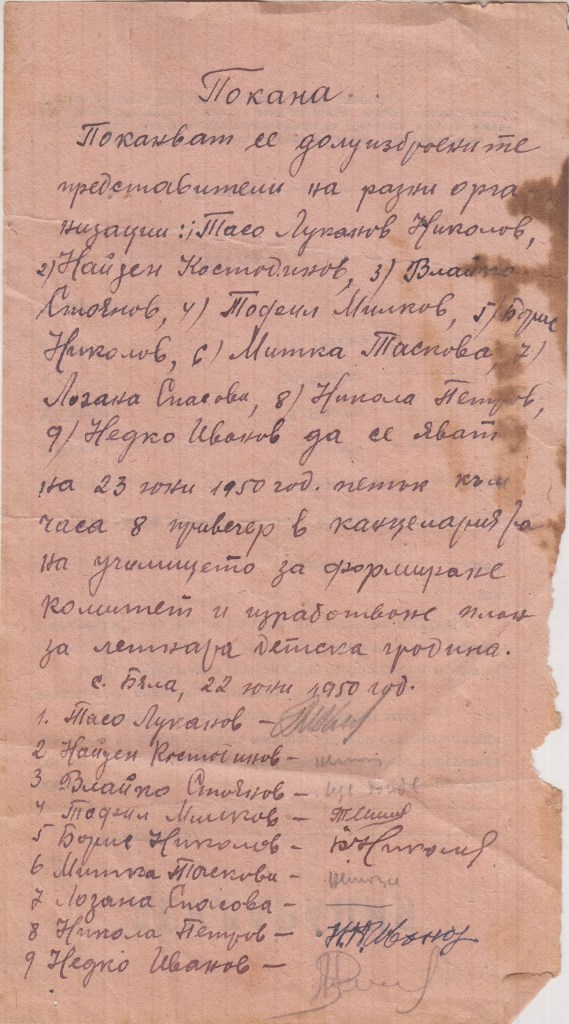 Покана.
Поканват се долуизброените
представители на разни орга
низации: 1) Тасо Луканов Николов,
2) Найден Костодинов, 3) Влайко
Стоянов, 4) Тофил Милков, 5) Борис
Николов, 6) Митка Таскова, 7)
Лозана Спасова, 8) Никола Петров,
9) Недко Иванов да се яват
на 23 юни 1950 год. петок към
часа 8 привечер в канцеларията
на училището за формиране
комитет и изработване план
за летната детска градина.
с. Бяла, 22 юни 1950 год.
1. Тасо Луканов –
2 Найден Костодинов –
3 Влайко Стоянов –
4 Тофил Милков –
5 Борис Николов – Б Николов
6 Митка Таскова –
7 Лозана Спасова –
8 Никола Петров –
9 Недко Иванов –